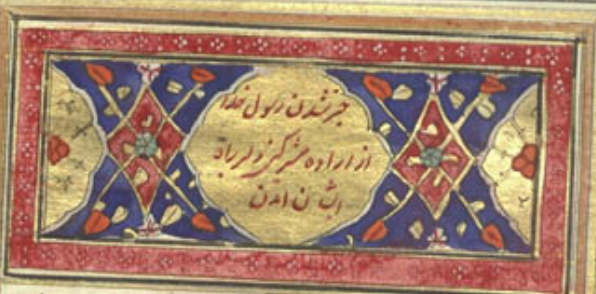 خبر شدن رسول خدا
از اراده مشرکین و
ایشان آمدن